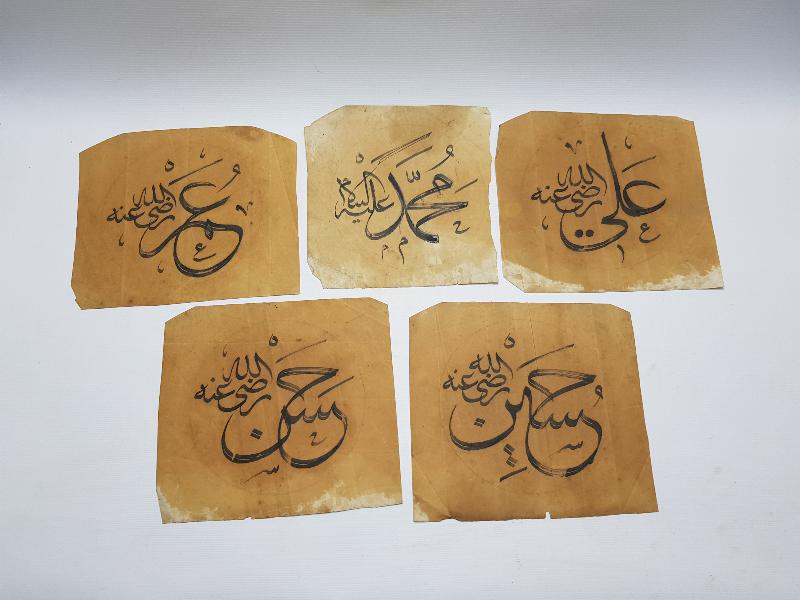 محمد عليه السلام
علي رضي الله عنه
عمر رضي الله عنه
حسين رضي الله عنه
حسن رضي الله عنه